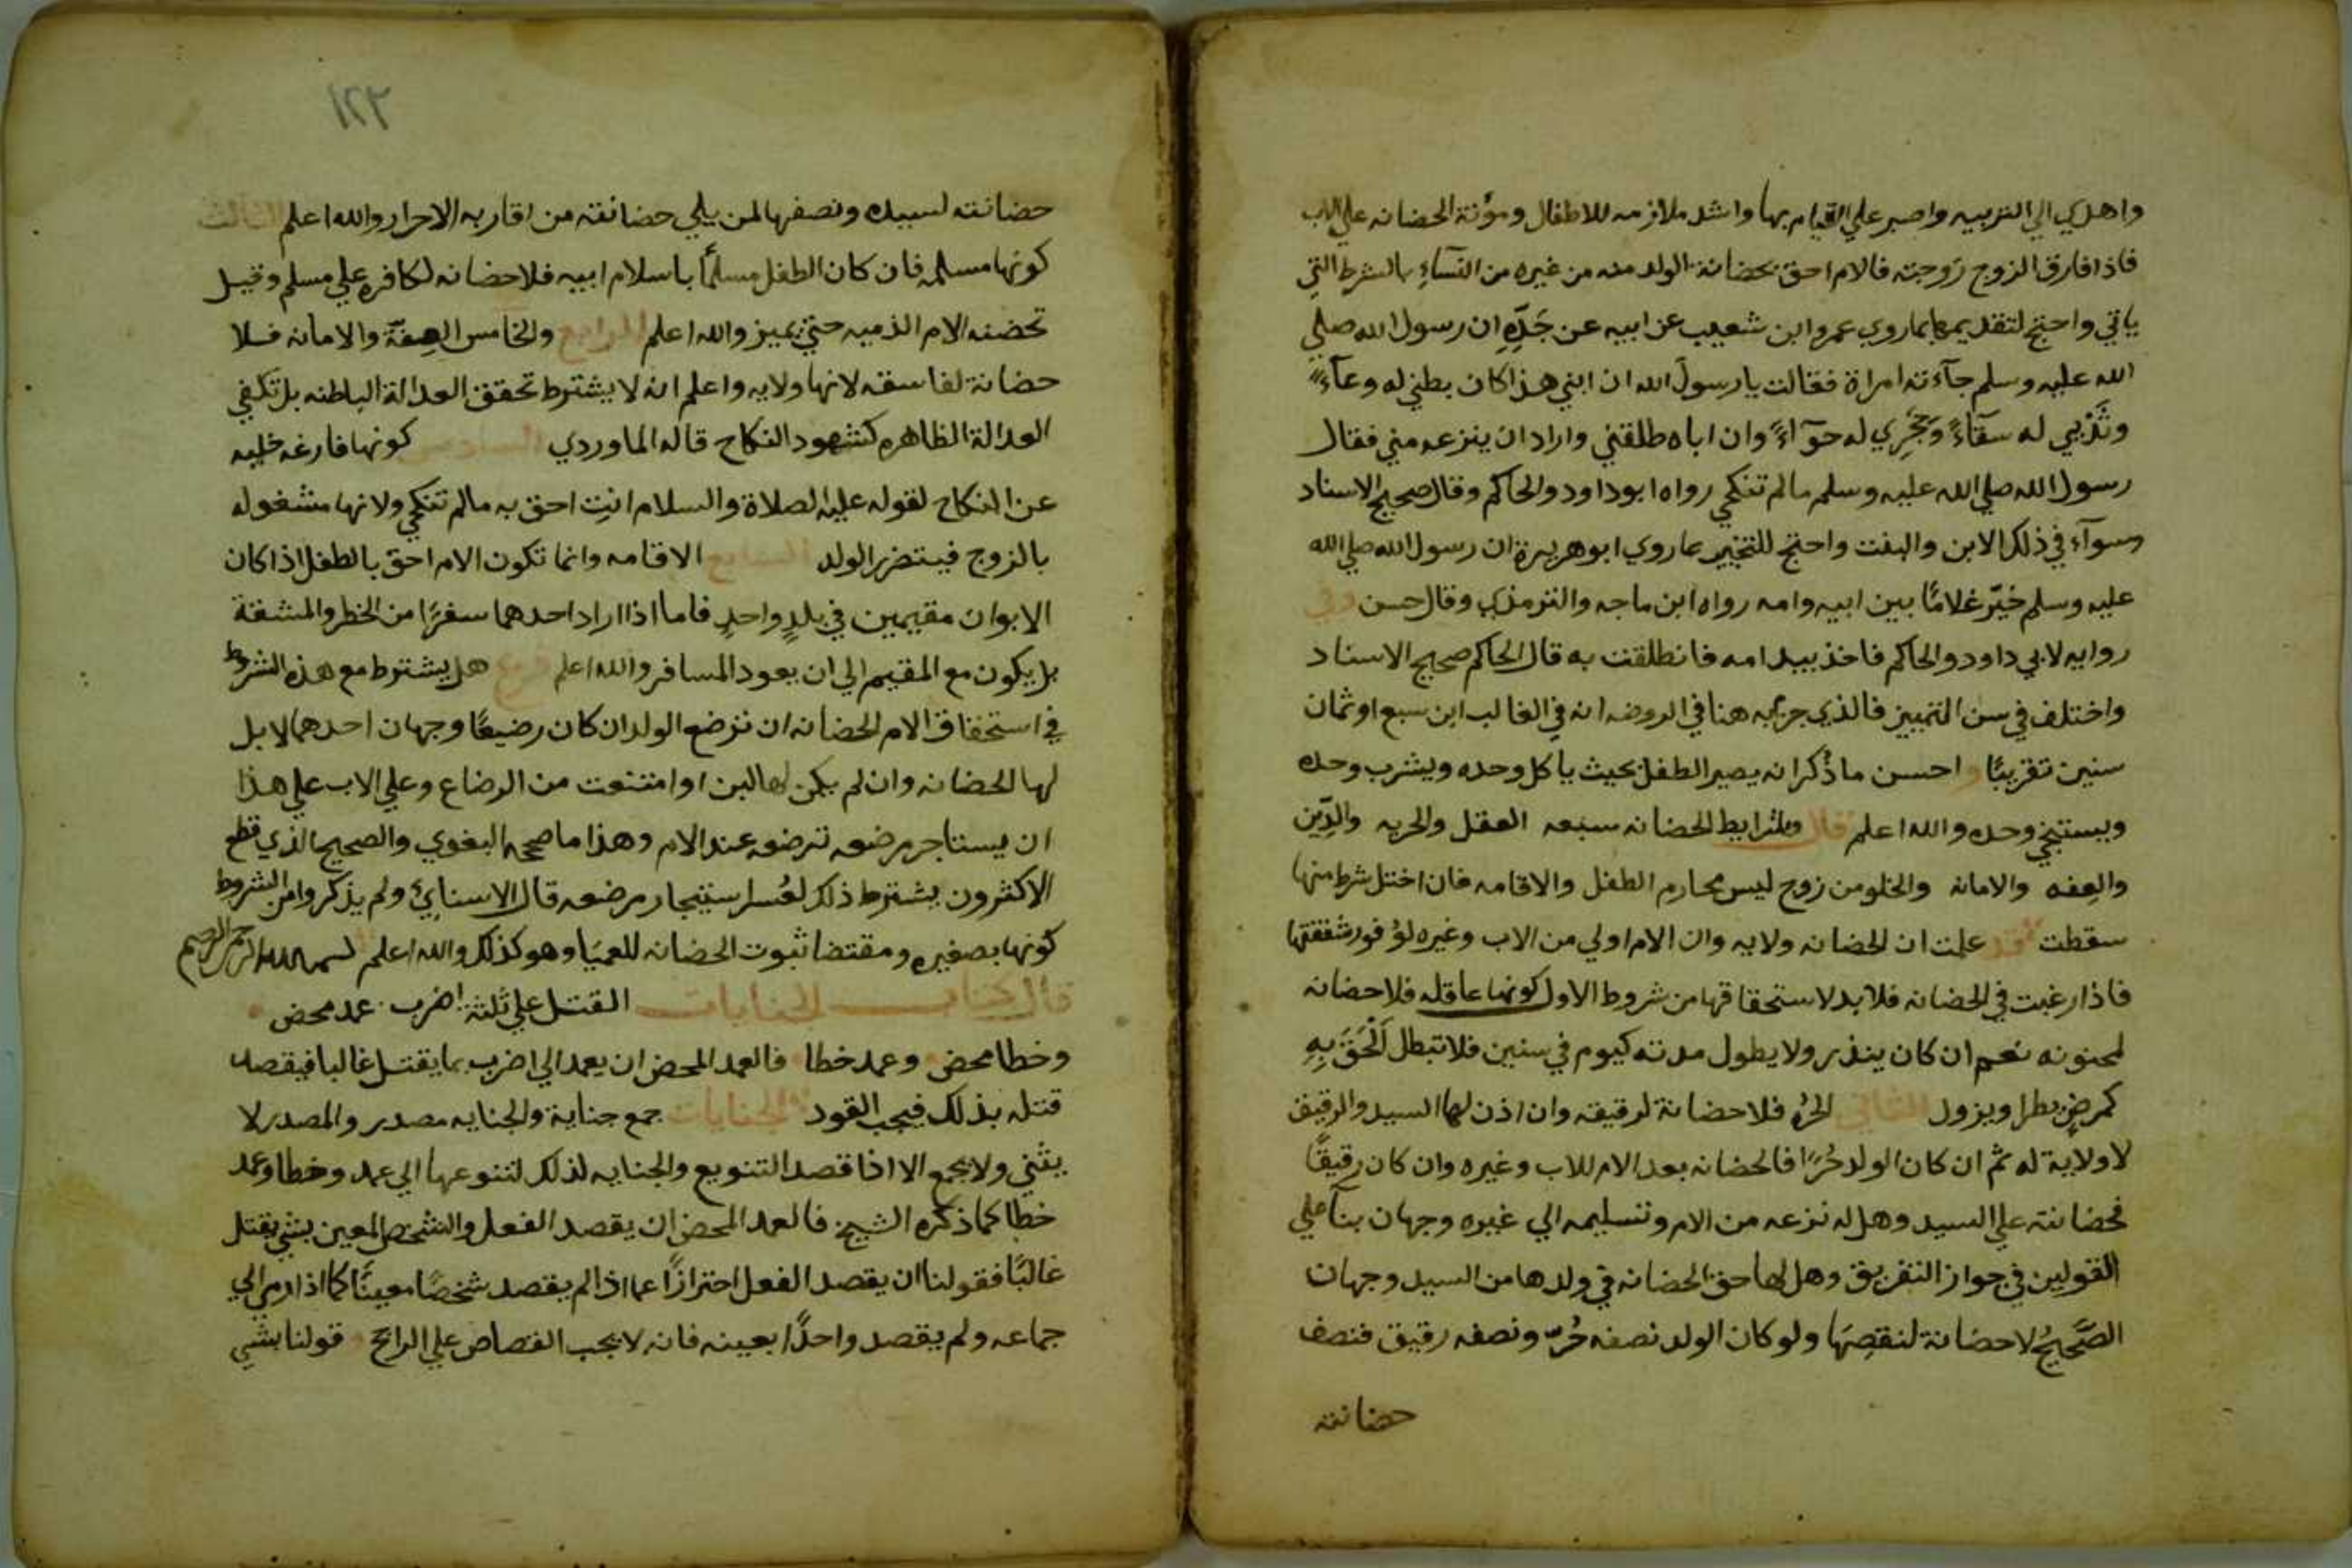 واهدي الي التربيه واصبر علي القيام بها واشد ملازمه للاطفال ومؤنة الحضانه علي الاب
فاذا فارق الزوج زوجته فالام احق بحضانة الولد منه من غيره من النسآءِ بالشرط التي
ياتي واحتج لتقديمها بماروي عمرو ابن شعيب عن ابيه عن جَدِّهِ ان رسول الله صلي
الله عليه وسلم جآءته امراة فقالت يا رسولَ الله ان ابني هذا كان بطني له وعآءً
وثَدْيي له سقآءً وَحجْرِي له حوآءً وان اباه طلقني واراد ان ينزعه مني فقال
رسول الله صلي الله عليه وسلم مالم تنكحي رواه ابوداود والحاكم وقال صحيح الاسناد
وسوآء في ذلك الابن والبنت واحتج للتخيير بما روي ابوهريرة ان رسول الله صلي الله
عليه وسلم خيّر غلامًا بين ابيه وامه رواه ابن ماجه والترمذي وقال حسن وفي
روايه لابي داود والحاكم فاخذ بيد امه فانطلقت به قال الحاكم صحيح الاسناد
واختلف في سن التمييز فالذي جزم به هنا في الروضه انه في الغالب ابن سبع او ثمان
سنين تقريبًا واحسن ما ذُكر انه يصير الطفل بحيث ياكل وحده ويشرب وحده
ويستنجي وحده والله اعلم قال وشرايط الحضانه سبعه العقل والحريه والدِّين
والعِفه والامانه والخلو من زوج ليس محارم الطفل والاقامه فان اختل شرط منها
سقطت قد علمت ان الحضانه ولايه وان الام اولي من الاب وغيره لوُفور شفقتها
فاذا رغبت في الحضانه فلابد لاستحقاقها من شروط الاول كونها عاقله فلاحضانه
لمجنونه نعم ان كان يندر ولا يطول مدته كيوم في سنين فلا تبطل الحَقَ بِهِ
كمرضٍ يطرا ويزول الثاني الحرُ فلاحضانة لرقيقه وان اذن لها السيد والرقيق
لا ولاية له ثم ان كان الولد حُرًا فالحضانه بعد الام للاب وغيره وان كان رقيقًا
فحضانته علي السيد وهل له نزعه من الام وتسليمه الي غيره وجهان بنآ علي
القولين في جواز التفريق وهل لها حق الحضانه في ولدها من السيد وجهان
الصَّحيحُ لاحضانة لنقصِهَا ولو كان الولد نصفه حُرّ ونصفه رقيق فنصف
حضانته
١٢٣
حضانته لسيده ونصفها لمن يلي حضانته من اقاربه الاحرار والله اعلم الثالث
كونها مسلمه فان كان الطفل مسلمًا باسلام ابيه فلاحضانه لكافره علي مسلم وقيل
تحضنه الام الذميه حتي يميز والله اعلم الرابع والخامس العِفّة والامانه فلا
حضانة لفاسقه لانها ولايه واعلم انه لا يشترط تحقق العدالة الباطنه بل تكفي
العدالة الظاهره كشهود النكاح قاله الماوردي السادس كونها فارغه خليه
عن النكاح لقوله عليه الصلاة والسلام انتِ احق به مالم تنكحي ولانها مشغوله
بالزوج فيتضرر الولد السابع الاقامه وانما تكون الام احق بالطفل اذا كان
الابوان مقيمين في بلدٍ واحدٍ فاما اذا اراد احدهما سفرًا من الخطر والمشقة
بل يكون مع المقيم الي ان يعود المسافر والله اعلم فرع هل يشترط مع هذه الشروط
في استحقاق الام الحضانه ان ترضع الولد ان كان رضيعًا وجهان احدهما لا بل
لها الحضانه وان لم يكن لها لبن او امتنعت من الرضاع وعلي الاب علي هذا
ان يستاجر مرضعه ترضعه عند الام وهذا ما صححه البغوي والصحيح الذي قطع
الاكثرون يشترط ذلك لعُسر استيجار مرضعه قال الاسنايئ ولم يذكروا من الشروط
كونها بصغيره ومقتضا ثبوت الحضانه للعميَا وهو كذلك والله اعلم بسم الله الرحمن الرحيم
قال كتاب الجنايات القتل علي ثلثة اضرب عمد محض
وخطا محض وعمد خطا فالعمد المحض ان يعمد الي اضرب بما يقتل غالبا فيقصد
قتله بذلك فيجب القود الجنايات جمع جناية والجنايه مصدر والمصدر لا
يثني ولا يجمع الا اذا قصد التنويع والجنايه لذلك لتنوعها الي عمد وخطا وعمد
خطا كما ذكره الشيخ فالعمد المحض ان يقصد الفعل والشخص المعين بشي يقتل
غالبًا فقولنا ان يقصد الفعل احترازًا عما اذا لم يقصد شخصًا معينًا كما اذا رمي الي
جماعه ولم يقصد واحدًا بعينه فانه لا يجب القصاص علي الراجح قولنا بشي